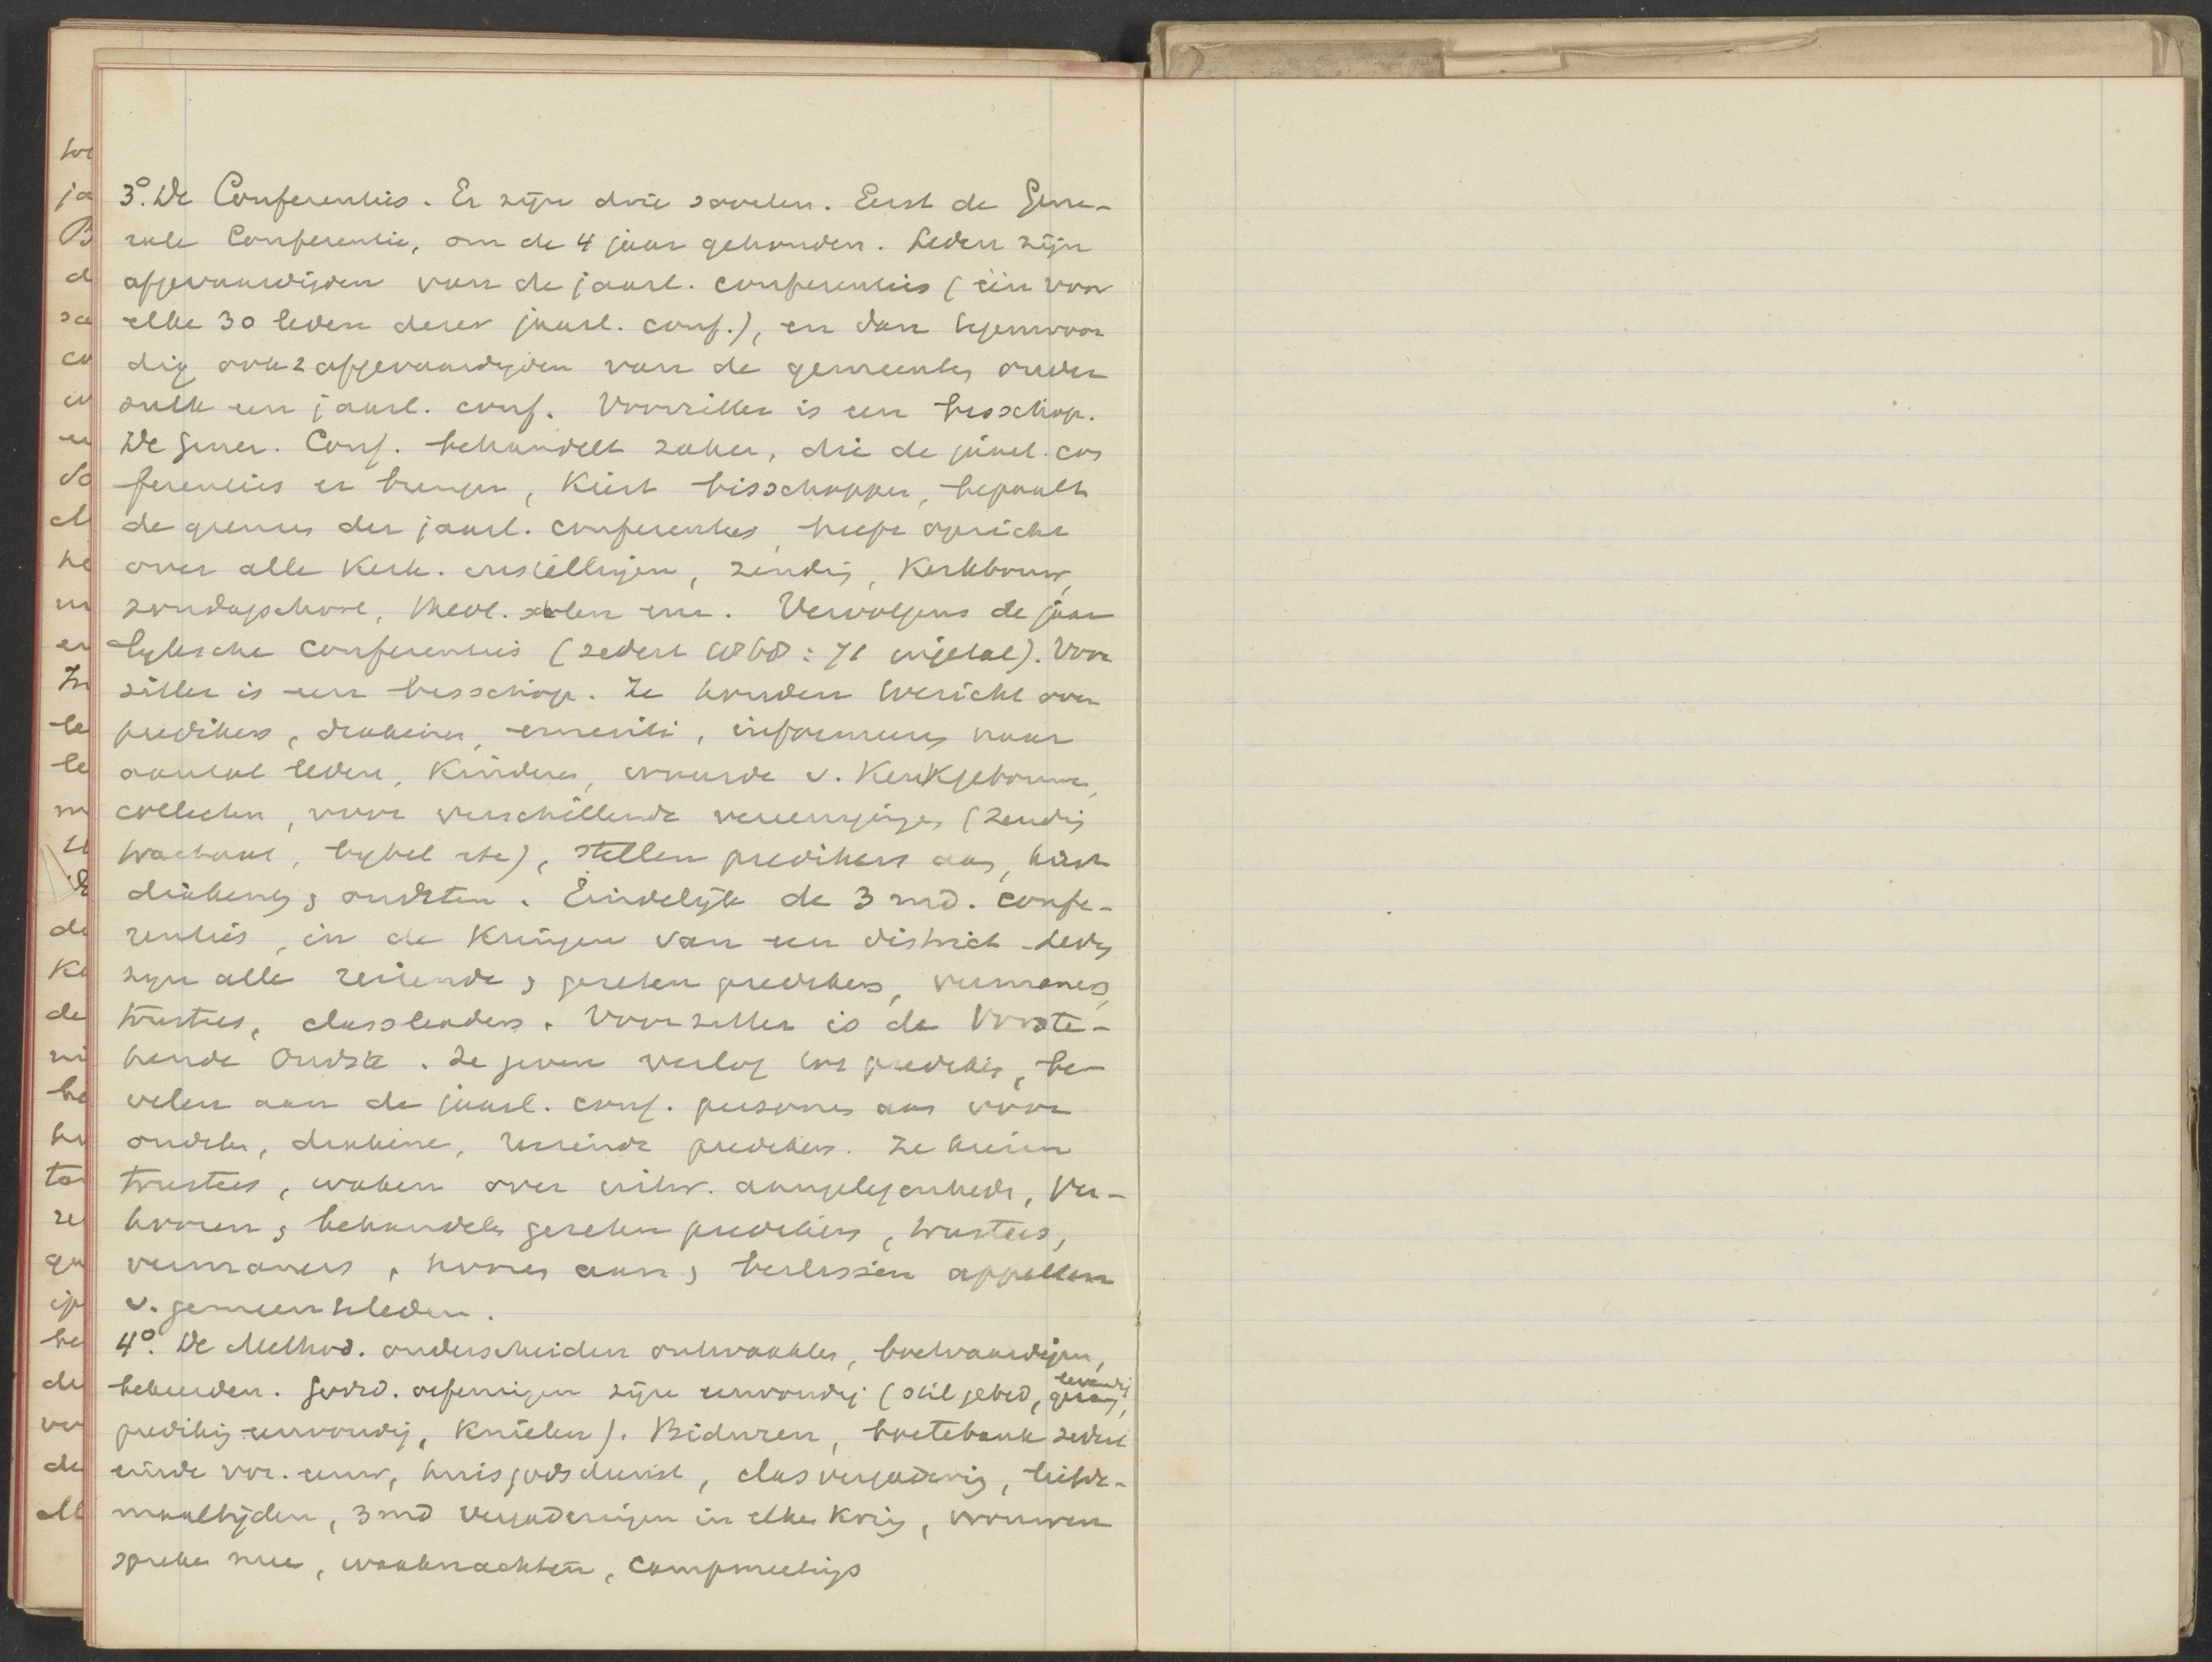 3°. De Conferenties. Er zijn drie soorten. Eerst de Gene-
rale Conferentie, om de 4 jaar gehouden. Leden zijn
afgevaardigden van de jaarl. conferenties (één voor
elke 30 leden dezer jaarl. conf.), en dan tegenwoor
dig ook 2 afgevaardigden van de gemeenten onder
zulk een jaarl. conf. Voorzitter is een bisschop.
De Gener. Conf. behandelt zaken, die de jaarl. con
ferenties er brengen, kiest bisschoppen, bepaalt
de grenzen der jaarl. conferenties, heeft opzicht
over alle kerk. instellingen, zending, kerkbouw,
zondagschool, theol. scholen enz. Vervolgens de jaar
lyksche conferenties (sedert 1868: 71 in getal). Voor
zitter is een bisschop. Ze houden toezicht over
predikers, diakenen, emeriti, informeeren naar
aantal leden, kinderen, waarde v. kerkgebouwen,
collecten, voor verschillende vereenigingen (zending
tractaat, bybel etc), stellen predikers aan, kiest
diakenen, oudsten. Eindelijk de 3 md. confe-
renties, in de kringen van een district. Leden
zyn alle reizende, gezeten predikers, vermaners,
trustees, classleaders. Voorzitter is de Voorste-
hende Oudste. Ze geven verlof tot prediking, be-
velen aan de jaarl. conf. personen aan voor
oudsten, diakenen, reizende predikers. Ze kiezen
trustees, waken over uitw. aangelegenheden, Ver-
hooren, behandelen gezeten predikers, trustees,
vermaners, hooren aan, beslissen appellen
v. gemeenteleden.
4°. De Method. onderscheiden ontwaakten, boetvaardigen,
bekeerden. Godsd. oefeningen zijn eenvoudig (stil gebed, levendig gezang,
prediking eenvoudig, knielen). Biduren, boetebank sedert
einde vor. eeuw, huisgodsdienst, clasvergadering, liefde-
maaltijden, 3 md vergaderingen in elken kring, vrouwen
spreken mee, waaknachten, campmeetings